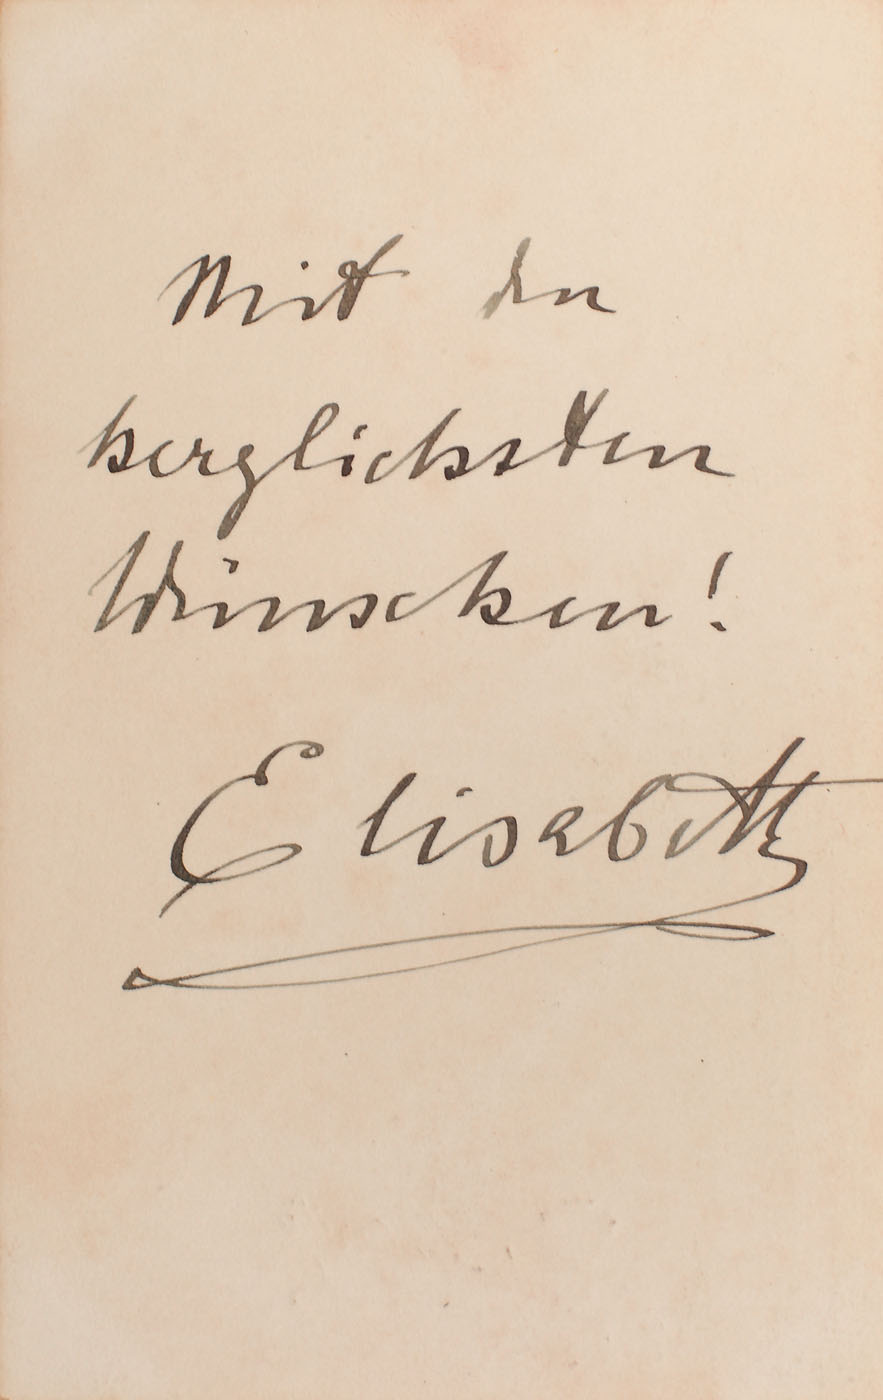 Mit den
herzlichsten
Wünschen!
Elisabeth